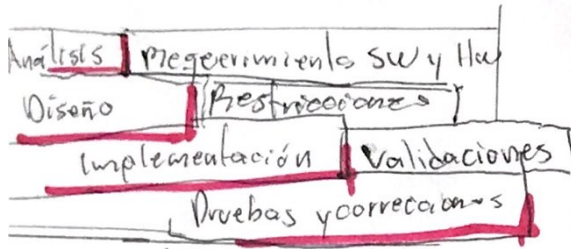 Análisis Reqerimiento SW y Hw
Diseño Restricciones
Implementación Validaciones
Pruebas y correcciones